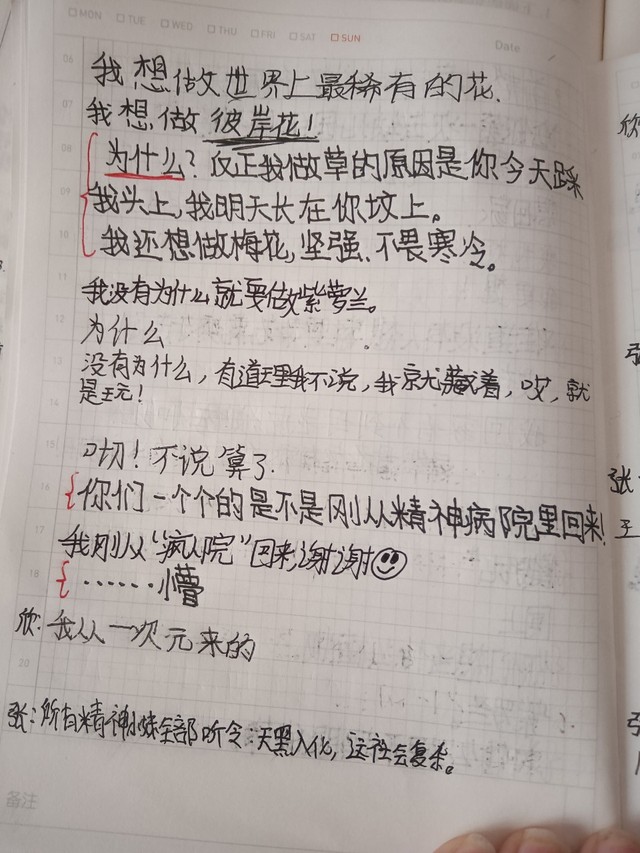 MON TUE WED THU FRI SAT SUN
Date
06 我想做世界上最稀有的花.
07 我想做 彼岸花!
08 为什么? 反正我做草的原因是你今天踩
09 我头上,我明天长在你坟上。
10 我还想做梅花,坚强、不畏寒冷。
11 我没有为什么就要做紫萝兰。
12 为什么
13 没有为什么,有道理我不说,我就藏着,哎,就
是玩!
14
15 叨!不说算了.
16 你们一个个的是不是刚从精神病院里回来!
17 我刚从“疯人院”回来,谢谢
18 ······小曹
欣: 我从一次元来的
20
张:所有精神小妹全部听令:天黑入化,这社会复杂。
备注
欣
张
张
王
张